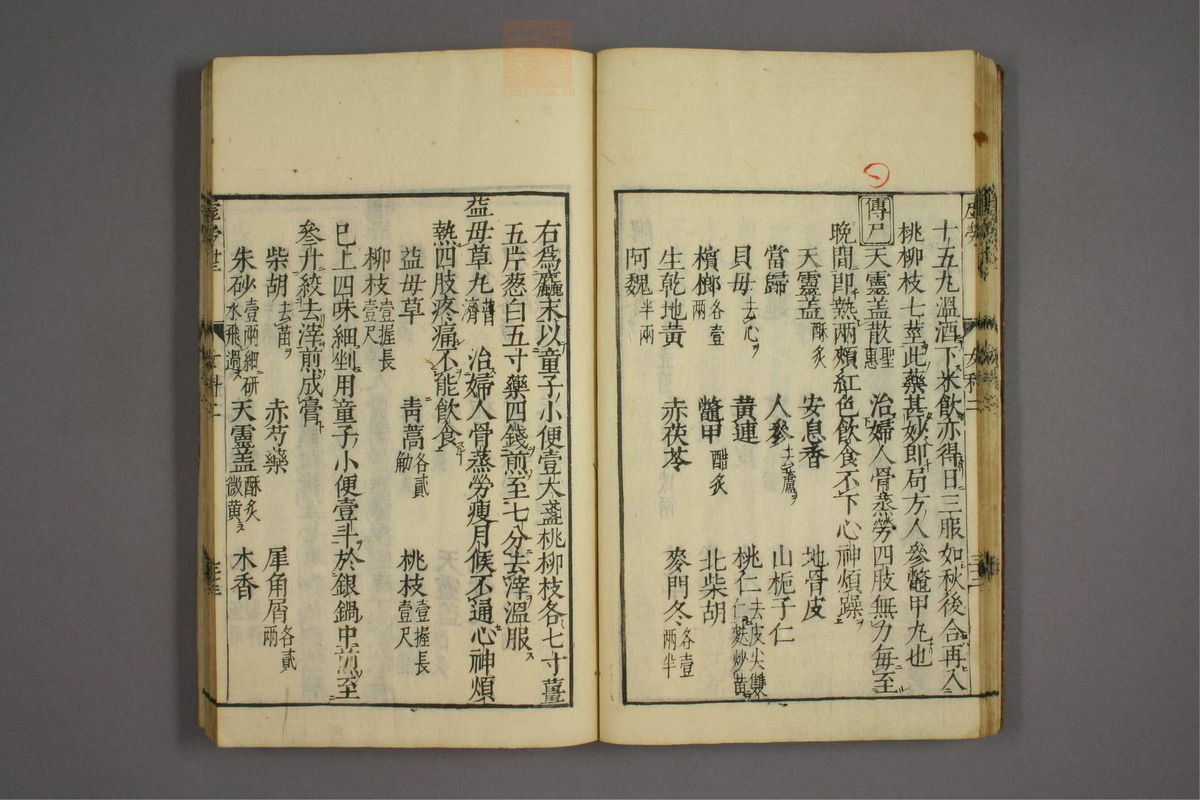 十五丸溫酒下米飲亦得日三服如秋後合再入
桃柳枝七莖此藥甚妙即局方人參鼈甲丸也
傳尸 天靈蓋散 聖惠 治婦人骨蒸勞四肢無力每至
晚間即熱兩頰紅色飲食不下心神煩躁
天靈蓋 酥炙 安息香 地骨皮
當歸 人參 去蘆 山梔子仁
貝母 去心 黃連 桃仁 去皮尖雙仁麩炒黃
檳榔 各壹兩 鼈甲 醋炙 北柴胡
生乾地黃 赤茯苓 麥門冬 各壹兩半
阿魏 半兩
右為麤末以童子小便壹大盞桃柳枝各七寸薑
五片葱白五寸藥四錢煎至七八分去滓溫服
益母草丸 普濟 治婦人骨蒸勞瘦月候不通心神煩
熱四肢疼痛不能飲食
益母草 靑蒿 各貳觔 桃枝 壹握長壹尺
柳枝 壹握長壹尺
已上四味細剉用童子小便壹斗於銀鍋中煎至
參升絞去滓煎成膏
柴胡 去苗 赤芍藥 犀角屑 各貳兩
朱砂 壹兩細研水飛過 天靈蓋 酥炙微黃 木香